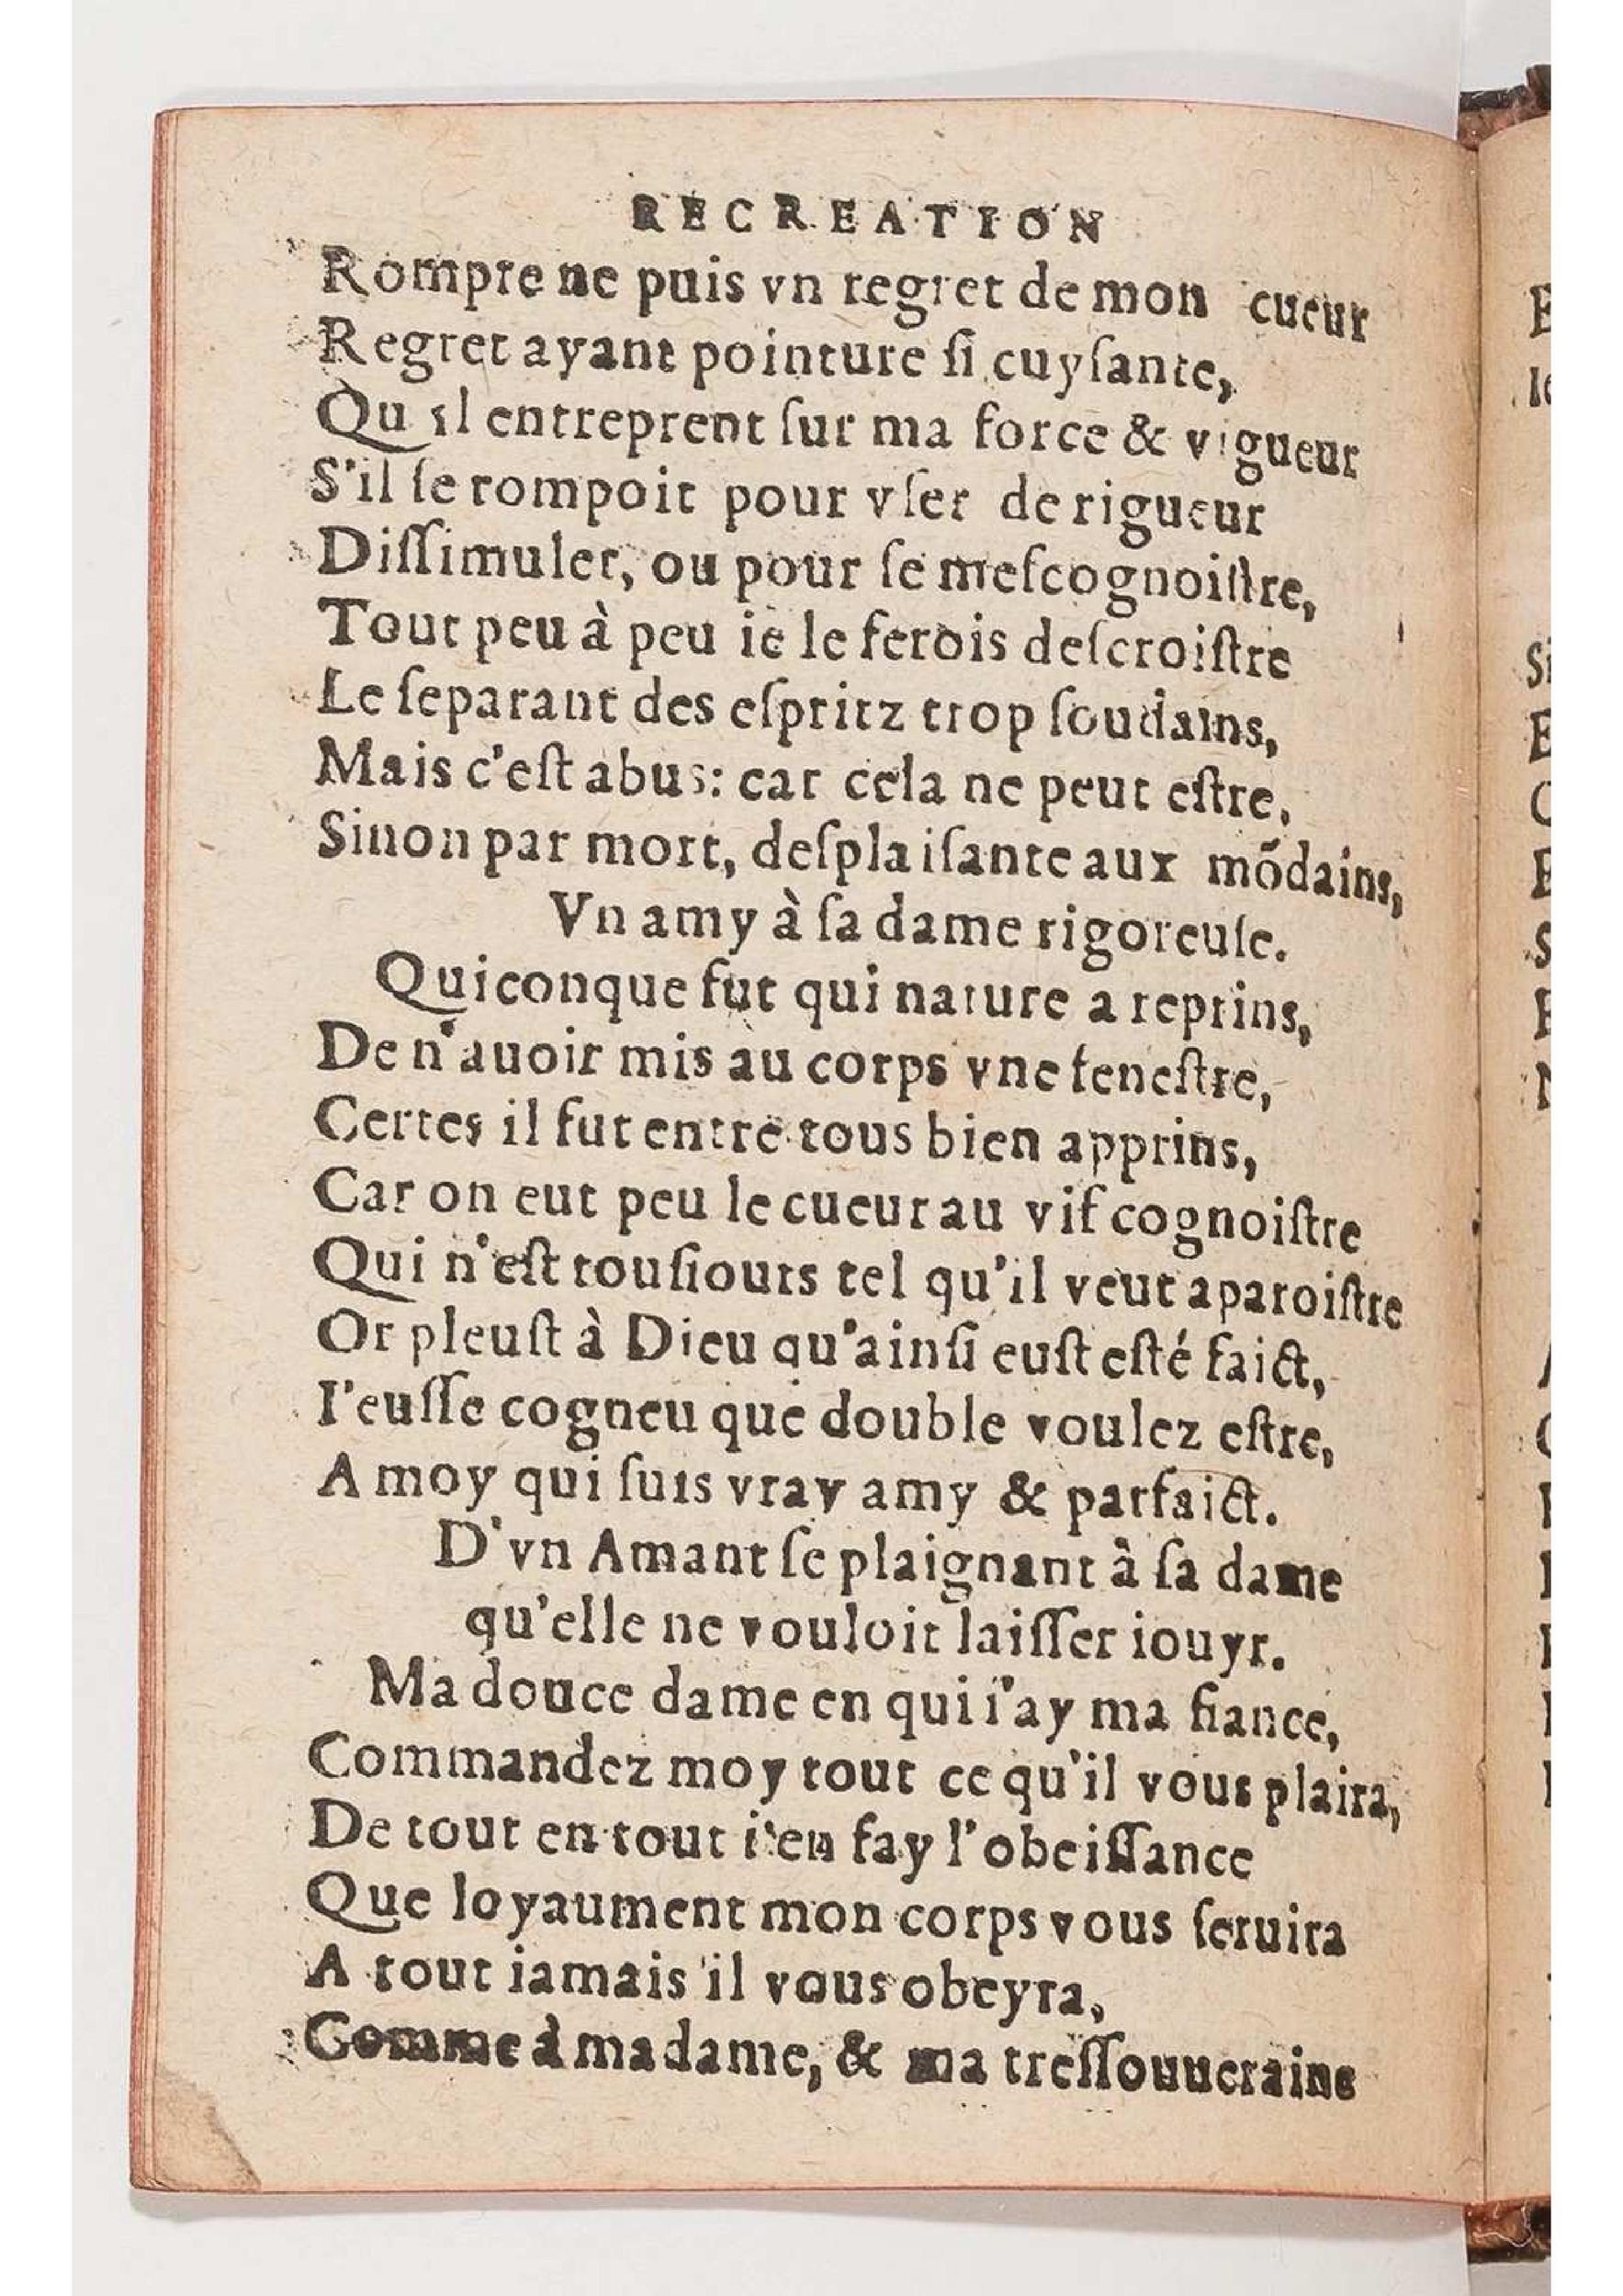 RECREATION
Rompre ne puis vn regret de mon cueur
Regret ayant pointure ſi cuyſante,
Qu il entreprent ſur ma force & vigueur
S'il ſe rompoit pour vſer de rigueur
Diſſimuler, ou pour ſe meſcognoiſtre,
Tout peu à peu ie le ferois deſcroiſtre
Le ſeparant des eſpritz trop ſoudains,
Mais c'eſt abus: car cela ne peut eſtre,
Sinon par mort, deſplaiſante aux mõdains,
Vn amy à ſa dame rigoreuſe.
Quiconque fut qui nature a reprins,
De n'auoir mis au corps vne feneſtre,
Certes il fut entre tous bien apprins,
Car on eut peu le cueur au vif cognoiſtre
Qui n'eſt touſiours tel qu'il veut aparoiſtre
Or pleuſt à Dieu qu'ainſi euſt eſté faict,
I'euſſe cogneu que double voulez eſtre,
A moy qui ſuis vray amy & parfaict.
D'vn Amant ſe plaignant à ſa dame
qu'elle ne vouloit laiſſer iouyr.
Ma douce dame en qui i'ay ma fiance,
Commandez moy tout ce qu'il vous plaira,
De tout en tout i'en fay l'obeiſſance
Que loyaument mon corps vous ſeruira
A tout iamais il vous obeyra,
Comme à ma dame, & ma treſſouueraine